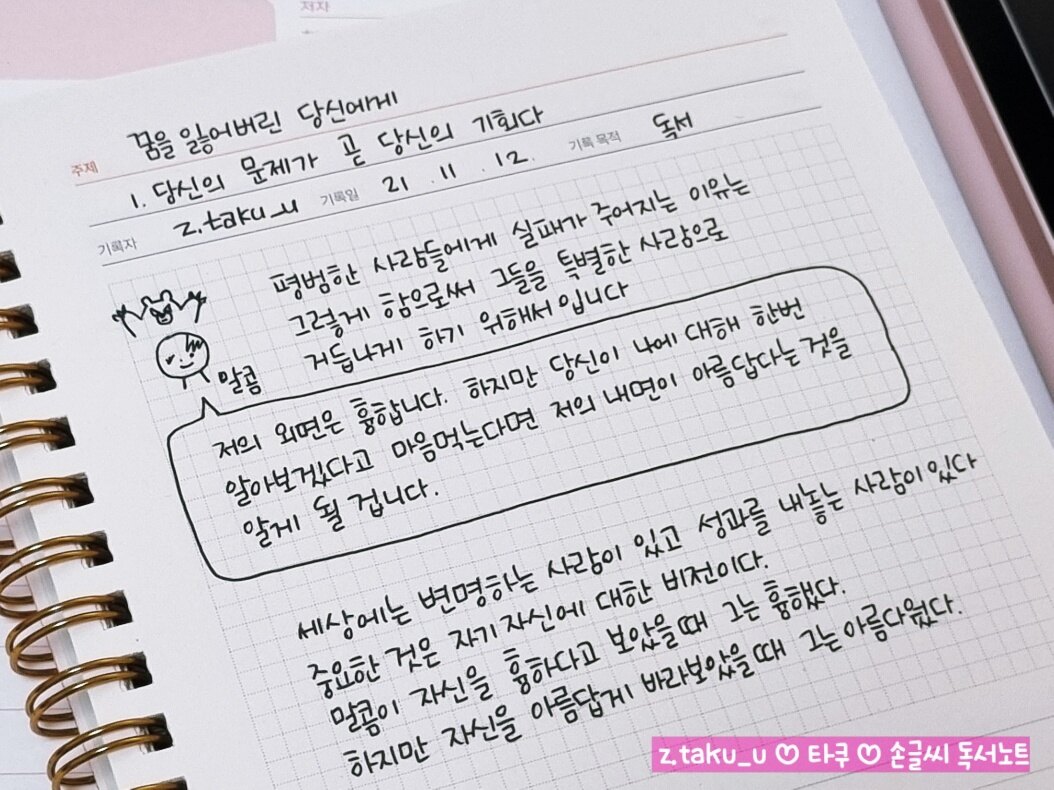 저자
꿈을 잃어버린 당신에게
주제
1. 당신의 문제가 곧 당신의 기회다
기록자 z.taku_u 기록일 21 . 11 . 12. 기록 목적 독서
평범한 사람들에게 실패가 주어지는 이유는
그렇게 함으로써 그들을 특별한 사람으로
거듭나게 하기 위해서 입니다
말콤
저의 외면은 흉합니다. 하지만 당신이 나에 대해 한번
알아보겠다고 마음먹는다면 저의 내면이 아름답다는 것을
알게 될 겁니다.
세상에는 변명하는 사람이 있고 성과를 내놓는 사람이 있다
중요한 것은 자기 자신에 대한 비전이다.
말콤이 자신을 흉하다고 보았을때 그는 흉했다.
하지만 자신을 아름답게 바라보았을때 그는 아름다웠다.
z.taku_u ♡ 타쿠 ♡ 손글씨 독서노트